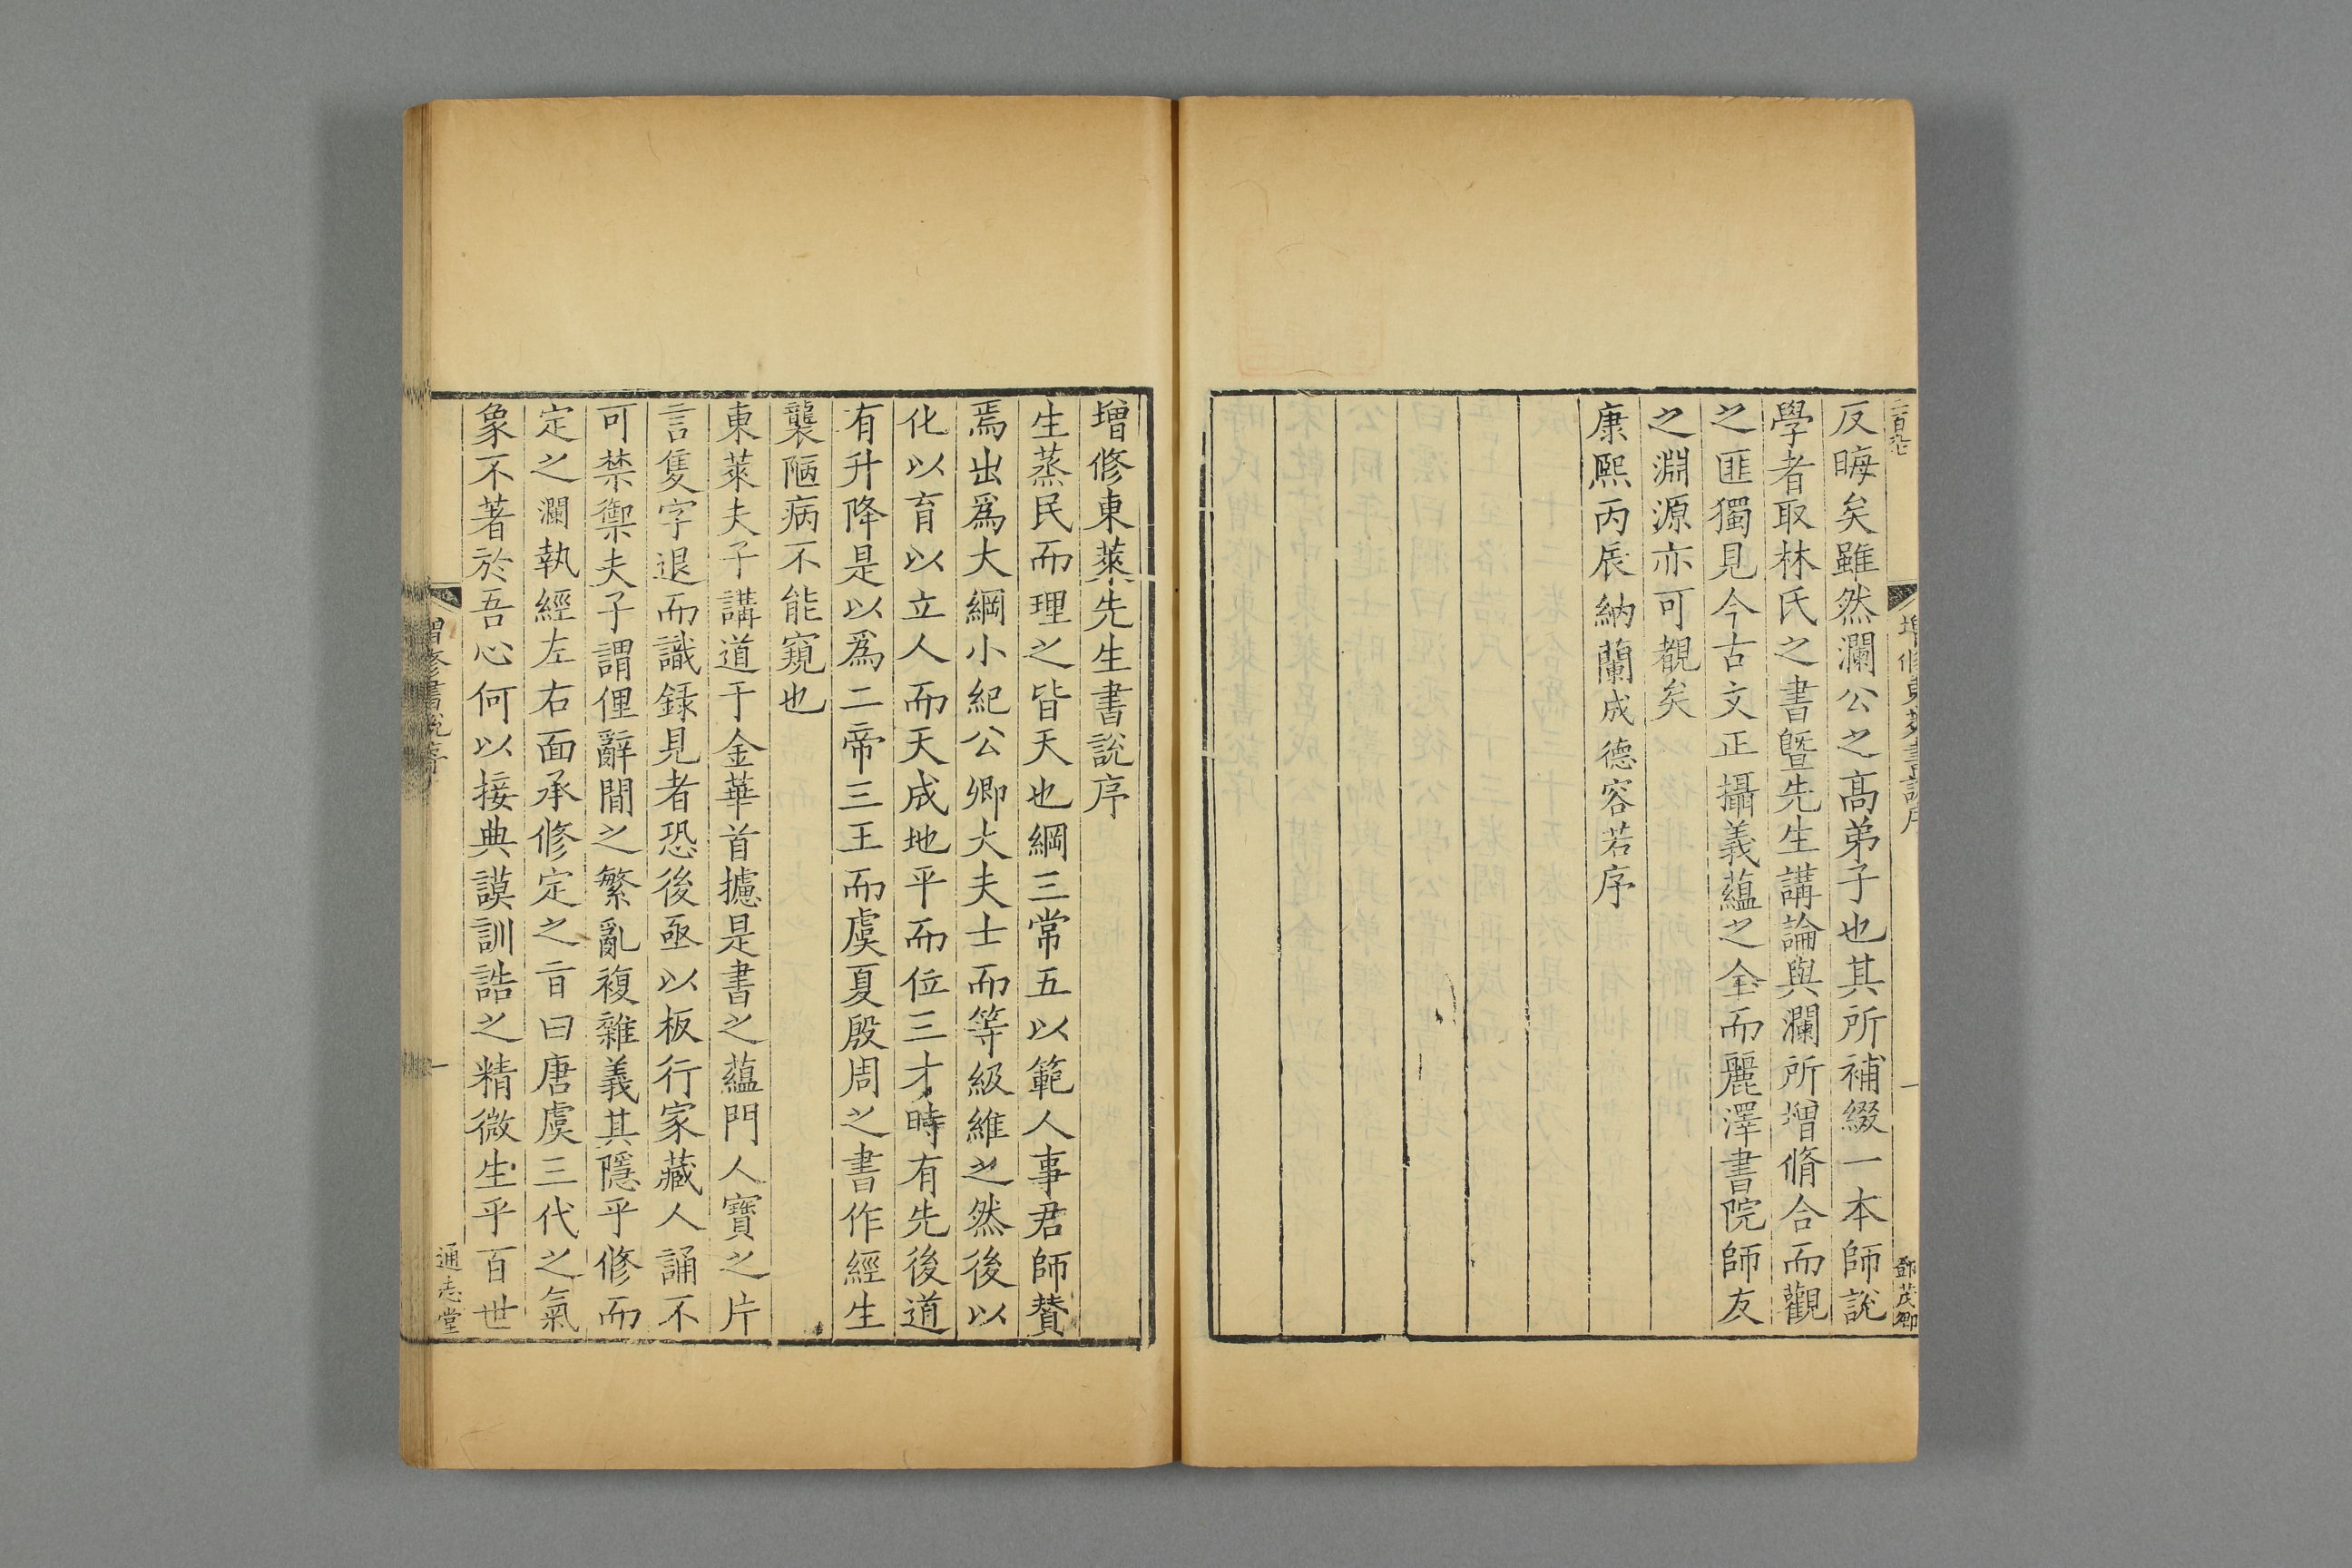 反晦矣雖然瀾公之高弟子也其所補綴一本師說
學者取林氏之書曁先生講論與瀾所增脩合而觀
之匪獨見今古文正攝義蘊之全而麗澤書院師友
之淵源亦可覩矣
康熙丙辰納蘭成德容若序
增修東萊書說序
一
鄧茂卿
增修東萊先生書說序
生蒸民而理之皆天也綱三常五以範人事君師贊
焉出爲大綱小紀公卿大夫士而等級維之然後以
化以育以立人而天成地平而位三才時有先後道
有升降是以爲二帝三王而虞夏殷周之書作經生
襲陋病不能窺也
東萊夫子講道于金華首攄是書之蘊門人寶之片
言隻字退而識錄見者恐後亟以板行家藏人誦不
可禁禦夫子謂俚辭閒之繁亂複雜義其隱乎修而
定之瀾執經左右面承修定之旨曰唐虞三代之氣
象不著於吾心何以接典謨訓誥之精微生乎百世
增修書說序
一
通志堂